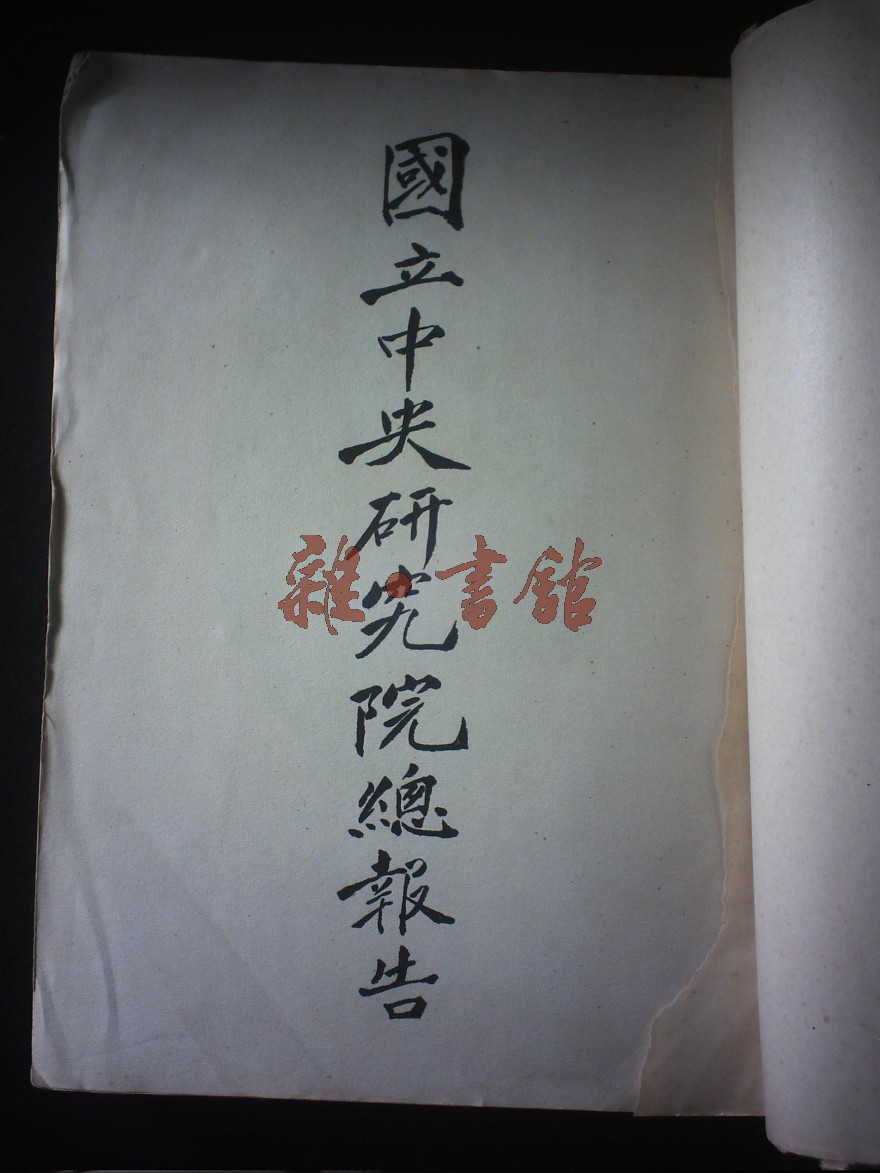 國立中央研究院總報告
雜·書館